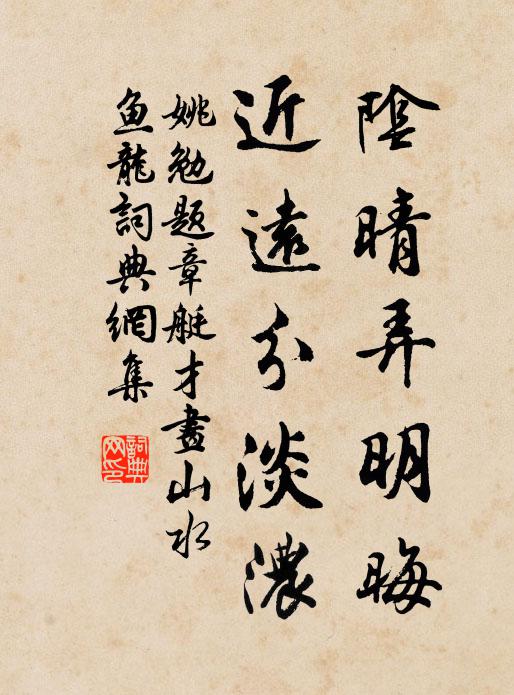 陰晴弄明晦
近遠分淡濃
姚勉題章艇才畫山水
魚龍詞典網集
詞典网印